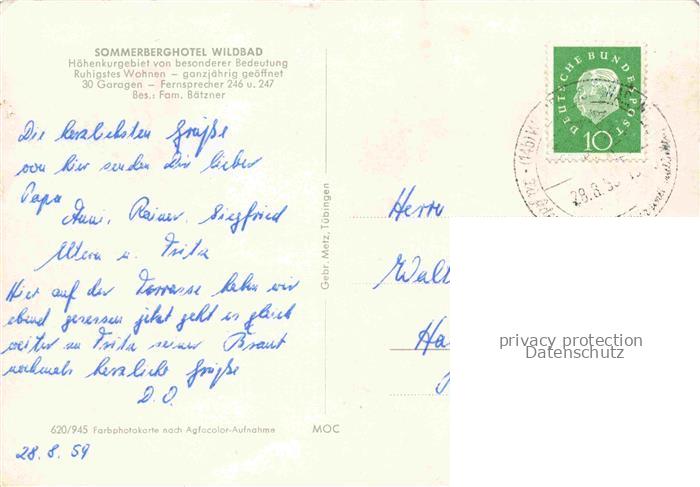 SOMMERBERGHOTEL WILDBAD
Höhenkurgebiet von besonderer Bedeutung
Ruhigstes Wohnen – ganzjährig geöffnet
30 Garagen – Fernsprecher 246 u. 247
Bes.: Fam. Bätzner
Die herzlichsten Grüße
von hier senden Dir lieber
Papa
Anni, Rainer, Siegfried
Eltern u. Fritz
Hier auf der Terrasse haben wir
ebend gesessen jetzt geht es gleich
weiter zu Fritz seiner Braut
nochmals herzliche Grüße
D. O.
620/945 Farbphotokarte nach Agfacolor-Aufnahme
MOC
28. 8. 59
Gebr. Metz, Tübingen
DEUTSCHE BUNDESPOST
10
(14b)
28.8.
Herrn
Walt
Ha
privacy protection
Datenschutz